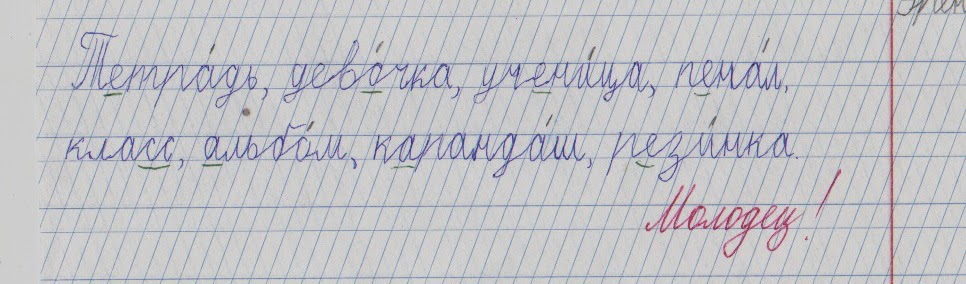 Тетра́дь, дево́чка, учени́ца, пена́л,
класс, альбо́м, каранда́ш, рези́нка.
Молодец!